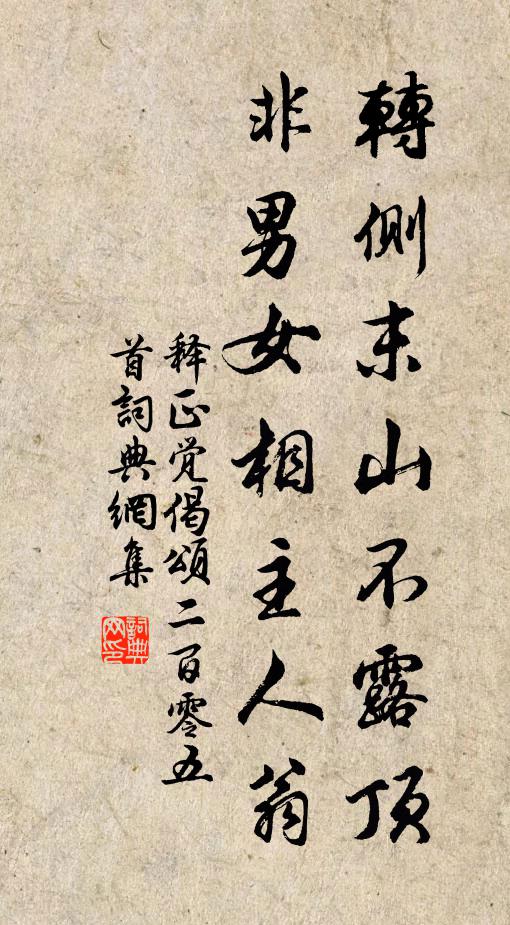 轉側末山不露頂
非男女相主人翁
释正觉偈頌二百零五
首詞典網集
詞典网印